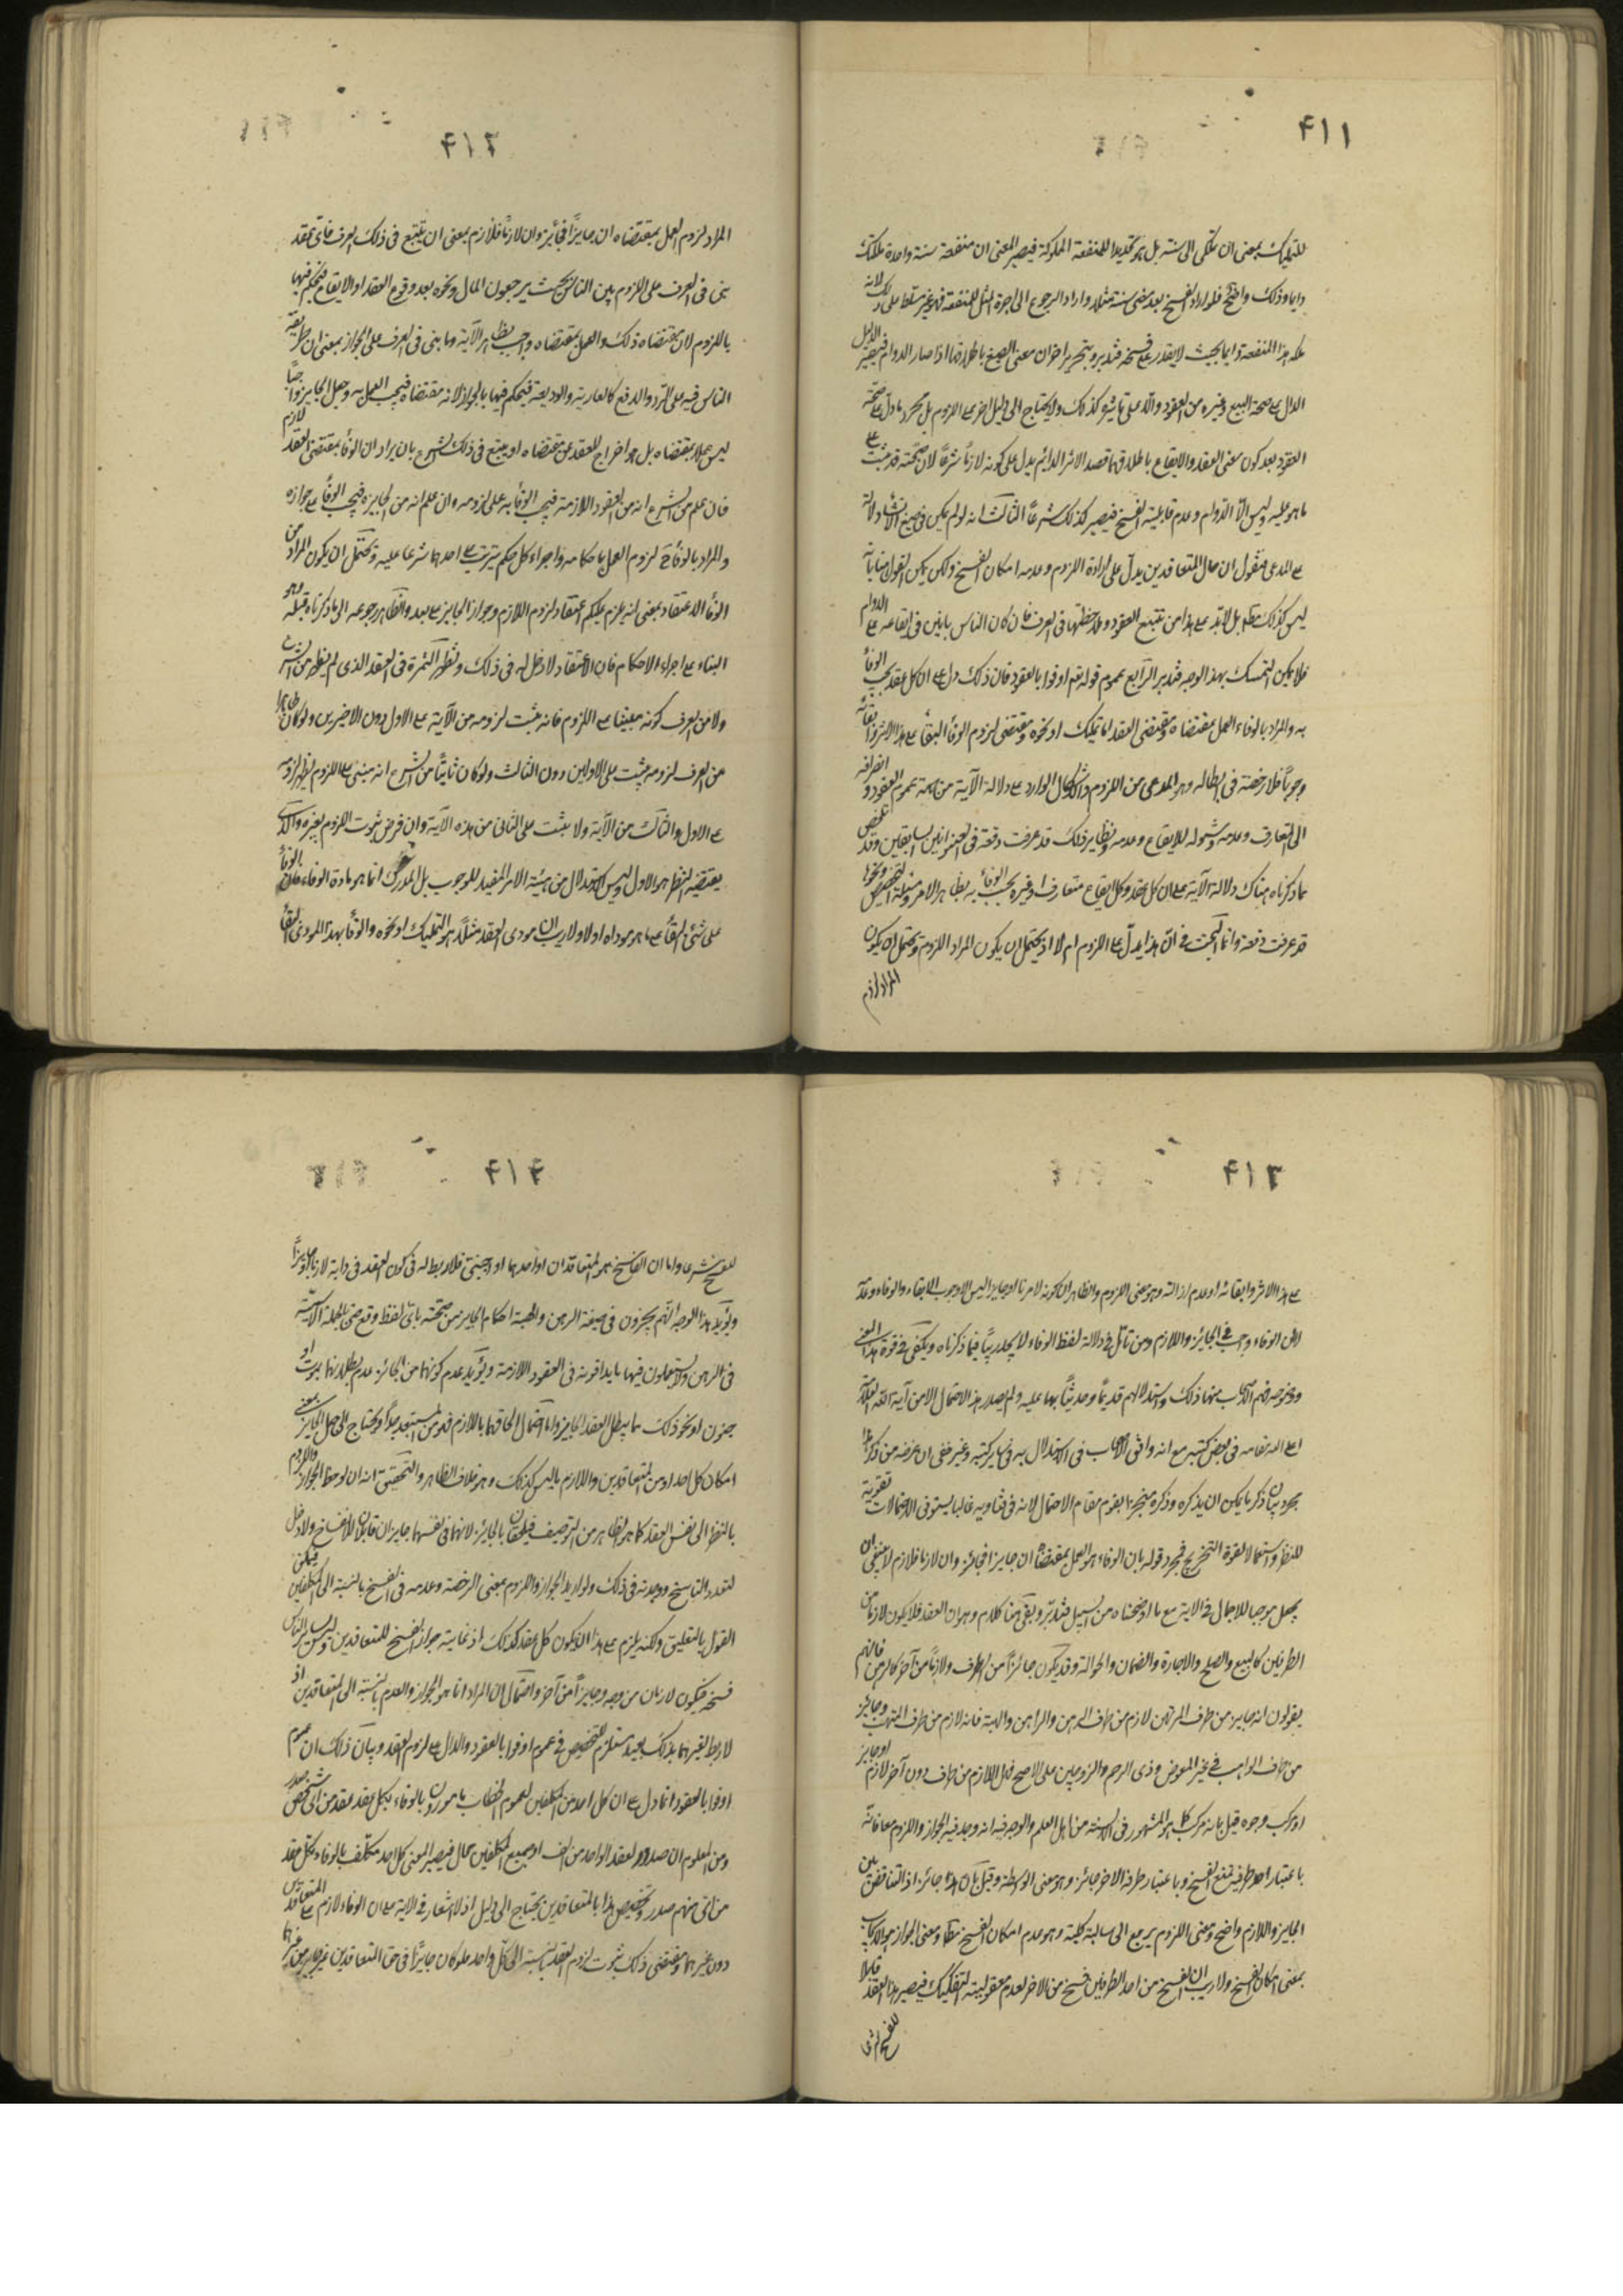 ۴۱۱
للتمليك بمعنى ان يتملك الى سنة بل هو تحديد للمنفعة المملوكة فيصير المعنى ان منفعة سنة واحدة ملكتك
دايما وذلك واضح فلو اراد الفسخ بعد مضى سنة مثلا واراد الرجوع الى اجرة المثل للمنفعة فهو غير مسلط على ذلك لانه
ملك هذا المنفعة دايما بحيث لا يقدر على فسخه فتدبر وبتحرير اخر ان معنى الصيغ باطلاقها اذا صار الدوام فيصير الدليل
الدال على صحة البيع وغيره من العقود دالا على تاثيره كذلك ولا يحتاج الى دليل اخر على اللزوم بل مجرد ما دل على صحة
العقود بعد كون معنى العقد والايقاع باطلاقهما قصد الاثر الدائم يدل على كونه لازما شرعا لان صحته قد ثبت على
ما هو عليه وليس الا الدوام وعدم قابلية الفسخ فيصير كذلك شرعا الثالث انه لو لم يكن فى صيغ الانشاء دلالة
على المدعى فنقول ان حال المتعاقدين يدل على ارادة اللزوم وعدم امكان الفسخ ولكن يمكن القول هنا بانه
ليس كذلك مطلقا بل لابد على هذا من تتبع العقود وملاحظتها فى العرف فان كان الناس بانين فى ايقاعه على الدوام
فلا يمكن التمسك بهذا الوجه فتدبر الرابع عموم قوله تعم اوفوا بالعقود فان ذلك دل على ان كل عقد يجب الوفأ
به والمراد بالوفاء العمل بمقتضاه ومقتضى العقد اما تمليك او نحوه ومقتضى لزوم الوفأ البقأ على هذا الاثر وابقائه
وجوبا فلا رخصة فى ابطاله وهو المدعى من اللزوم والاشكال الوارد على دلالة الآية من جهة عموم العقود وانصرافه
الى المتعارف وعدمه وشموله للايقاع وعدمه ونظاير ذلك قد عرفت دفعه فى العنوانين السابقين وقد تلخص
مما ذكرناه هناك دلالة الآية على ان كل عقد وكل ايقاع متعارف او غيره يجب الوفأ به بظاهر الامر ومسئلة التخصيص ونحوا
قد عرفت دفعه وانما البحث فى ان هذا يدل على اللزوم ام لا اذ يحتمل ان يكون المراد اللزوم ويحتمل ان يكون
المراد لزوم
۴۱۲
المراد لزوم العمل بمقتضاه ان جايزا فجائز وان لازما فلازم بمعنى ان يتتبع فى ذلك العرف فاى عقد
بنى فى العرف على اللزوم بين الناس بحيث يرجعون المال ونحوه بعد وقوع العقد او الايقاع فيحكم فيها
باللزوم لان مقتضاه ذلك والعمل بمقتضاه واجب بظاهر الآية وما بنى فى العرف على الجواز بمعنى ان طريقة
الناس فيه على الترد والدفع كالعارية والوديعة فيحكم فيها بالجواز لانه مقتضاه فيجب العمل به وجعل الجايز واجبا
ليس عملا بمقتضاه بل هو اخراج للعقد عن مقتضاه او يتبع فى ذلك الشرع بان يراد ان الوفأ بمقتضى العقد لازم
فان علم من الشرع انه من العقود اللازمة فيجب الوفأ به على لزومه وان علم انه من الجايزة فيجب الوفأ على جوازه
والمراد بالوفأ ح لزوم العمل باحكامه واجراء كل حكم يترتب على احدهما شرعا عليه ويحتمل ان يكون المراد من
الوفأ الاعتقاد بمعنى انه يلزم عليكم اعتقاد لزوم اللازم وجواز الجايز على بعد والظاهر رجوعه الى ما ذكرناه قبله وهو
البناء على اجراء الاحكام فان الاعتقاد لا دخل له فى ذلك وتظهر الثمرة فى العقد الذى لم يظهر من الشرع
ولا من العرف كونه مبنيا على اللزوم فانه يثبت لزومه من الآية على الاول دون الاخيرين ولو كان ظاهرا
من العرف لزومه يثبت على الاولين دون الثالث ولو كان ثابتا من الشرع انه مبنى على اللزوم يظهر لزومه
على الاول والثالث من الآية ولا يثبت على الثانى من هذه الآية وان فرض ثبوت اللزوم بغيره والذى
يقتضيه النظر هو الاول وليس الاستدلال من هيئة الامر المفيد للوجوب بل المدرك انما هو مادة الوفاء فان الوفأ
على شئ البقأ على ما هو مؤداه اولا ولا ريب ان مودى العقد مثلا هو التمليك او نحوه والوفأ بهذا المودى البقأ
۴۱۳
على هذا الاثر وابقائه او عدم ازالته وهو معنى اللزوم والظاهر ان كونه لازما او جايزا ليس الا وجوب الابقاء والوفاء وعدمه
لا ان الوفاء واجب فى الجائز واللازم ومن تامل فى دلالة لفظ الوفاء لا يجد ريبا فيما ذكرناه ويكفى فى قوة هذا المعنى
ووضوحه فهم الاصحاب منها ذلك واستدلالهم قديما وحديثا بها عليه ولم يصدر هذا الاحتمال الا من آية الله العلامة
اعلى الله مقامه فى بعض كتبه مع انه وافق الاصحاب فى الاستدلال به فى ساير كتبه وغير خفى ان غرضه من ذكر هذا
مجرد بيان ذكر ما يمكن ان يذكره وذكره منجزا بقوم مقام الاحتمال لانه فى فتاويه غالبا يستوفى الاحتمالات تقوية
للنظر واستعمالا لقوة التخريج فمجرد قوله بان الوفاء هو العمل بمقتضاه ان جايزا فجائز وان لازما فلازم لا ينبغى ان
يجعل موجبا للاجمال فى الاية مع ما اوضحناه من السبيل فتدبر وبقى هنا كلام وهو ان العقد قد يكون لازما من
الطرفين كالبيع والصلح والاجارة والضمان والحوالة وقد يكون جائزا من طرف ولازما من آخر كالرهن فانهم
يقولون انه جايز من طرف المرتهن لازم من طرف الرهن والراهن والهبة فانه لازم من طرف المتهب وجائز
من طرف الواهب فى غير المعوض وذى الرحم والزوجين على الاصح فهل اللازم من طرف دون آخر لازم او جايز
او مركب وجوه قيل بانه مركب كما هو المشهور فى السنة من اهل العلم والوجه فيه انه وجد فيه الجواز واللزوم معا فانه
باعتبار احد طرفيه يمتنع الفسخ وباعتبار طرفه الاخر جائز وهو معنى الواسطة وقيل بان هذا جائز اذ التناقض بين
الجايز واللازم واضح ومعنى اللزوم يرجع الى سالبة كلية وهو عدم امكان الفسخ مطلقا ومعنى الجواز هو الايجاب
بمعنى امكان الفسخ ولا ريب ان الفسخ من احد الطرفين فسخ من الاخر لعدم معقولية التفكيك فيصير هذا العقد قابلا
للفسخ شرعا
۴۱۴
للفسخ شرعا واما ان الفاسخ هو المتعاقدان او احدهما او اجنبى فلا ربط له فى كون العقد فى ذاته لازما او جايزا
ويؤيد هذا الوجه انهم يجرون فى صيغة الرهن والهبة احكام الجايز من صحته باى لفظ وقع حتى الجملة الاسمية
فى الرهن ولا يستعملون فيها ما يداقونه فى العقود اللازمة ويؤيد عدم كونهما من الجائز عدم بطلانهما بموت او
جنون او نحو ذلك مما يبطل العقد الجايز واما احتمال الحاقهما باللازم فهو من المستبعد جدا ويحتاج الى جعل الجايز بمعنى
امكان كل احد او من المتعاقدين واللازم ما ليس كذلك وهو خلاف الظاهر والتحقيق انه ان لوحظ الجواز واللزوم
بالنظر الى نفس العقد كما هو الظاهر من التوصيف فيلحقان بالجائز لانهما فى نفسهما جايزان قابلان للانفساخ ولا دخل
لتعدد الفاسخ ووحدته فى ذلك ولو اريد الجواز واللزوم بمعنى الرخصة وعدمه فى الفسخ بالنسبة الى المكلفين فيمكن
القول بالتعليق ولكنه يلزم على هذا ان يكون كل عقد كذلك اذ غايته جواز الفسخ للمتعاقدين وليس لساير الناس
فسخه فيكون لازما من وجه وجايزا من آخر واحتمال ان المراد انما هو الجواز والعدم بالنسبة الى المتعاقدين اذ
لا ربط لغيرهما بذلك بعيد مستلزم للتخصيص فى عموم اوفوا بالعقود والدال على لزوم العقد وبيان ذلك ان عموم
اوفوا بالعقود انما دل على ان كل احد من المكلفين لعموم الخطاب مامورون بالوفاء بكل عقد عقد من اى شخص صدر
ومن المعلوم ان صدور العقد الواحد من الف او جميع المكلفين محال فيصير المعنى كل احد مكلف بالوفاء بكل عقد
من اى منهم صدر وتخصيص هذا بالمتعاقدين يحتاج الى دليل اذ لا اشعار فى الاية على ان الوفاء لازم على المتعاقدين
دون غيرهما ومقتضى ذلك ثبوت لزوم العقد بالنسبة الى كل واحد فلو كان جايزا فى حق المتعاقدين غير جايز من غيرهما